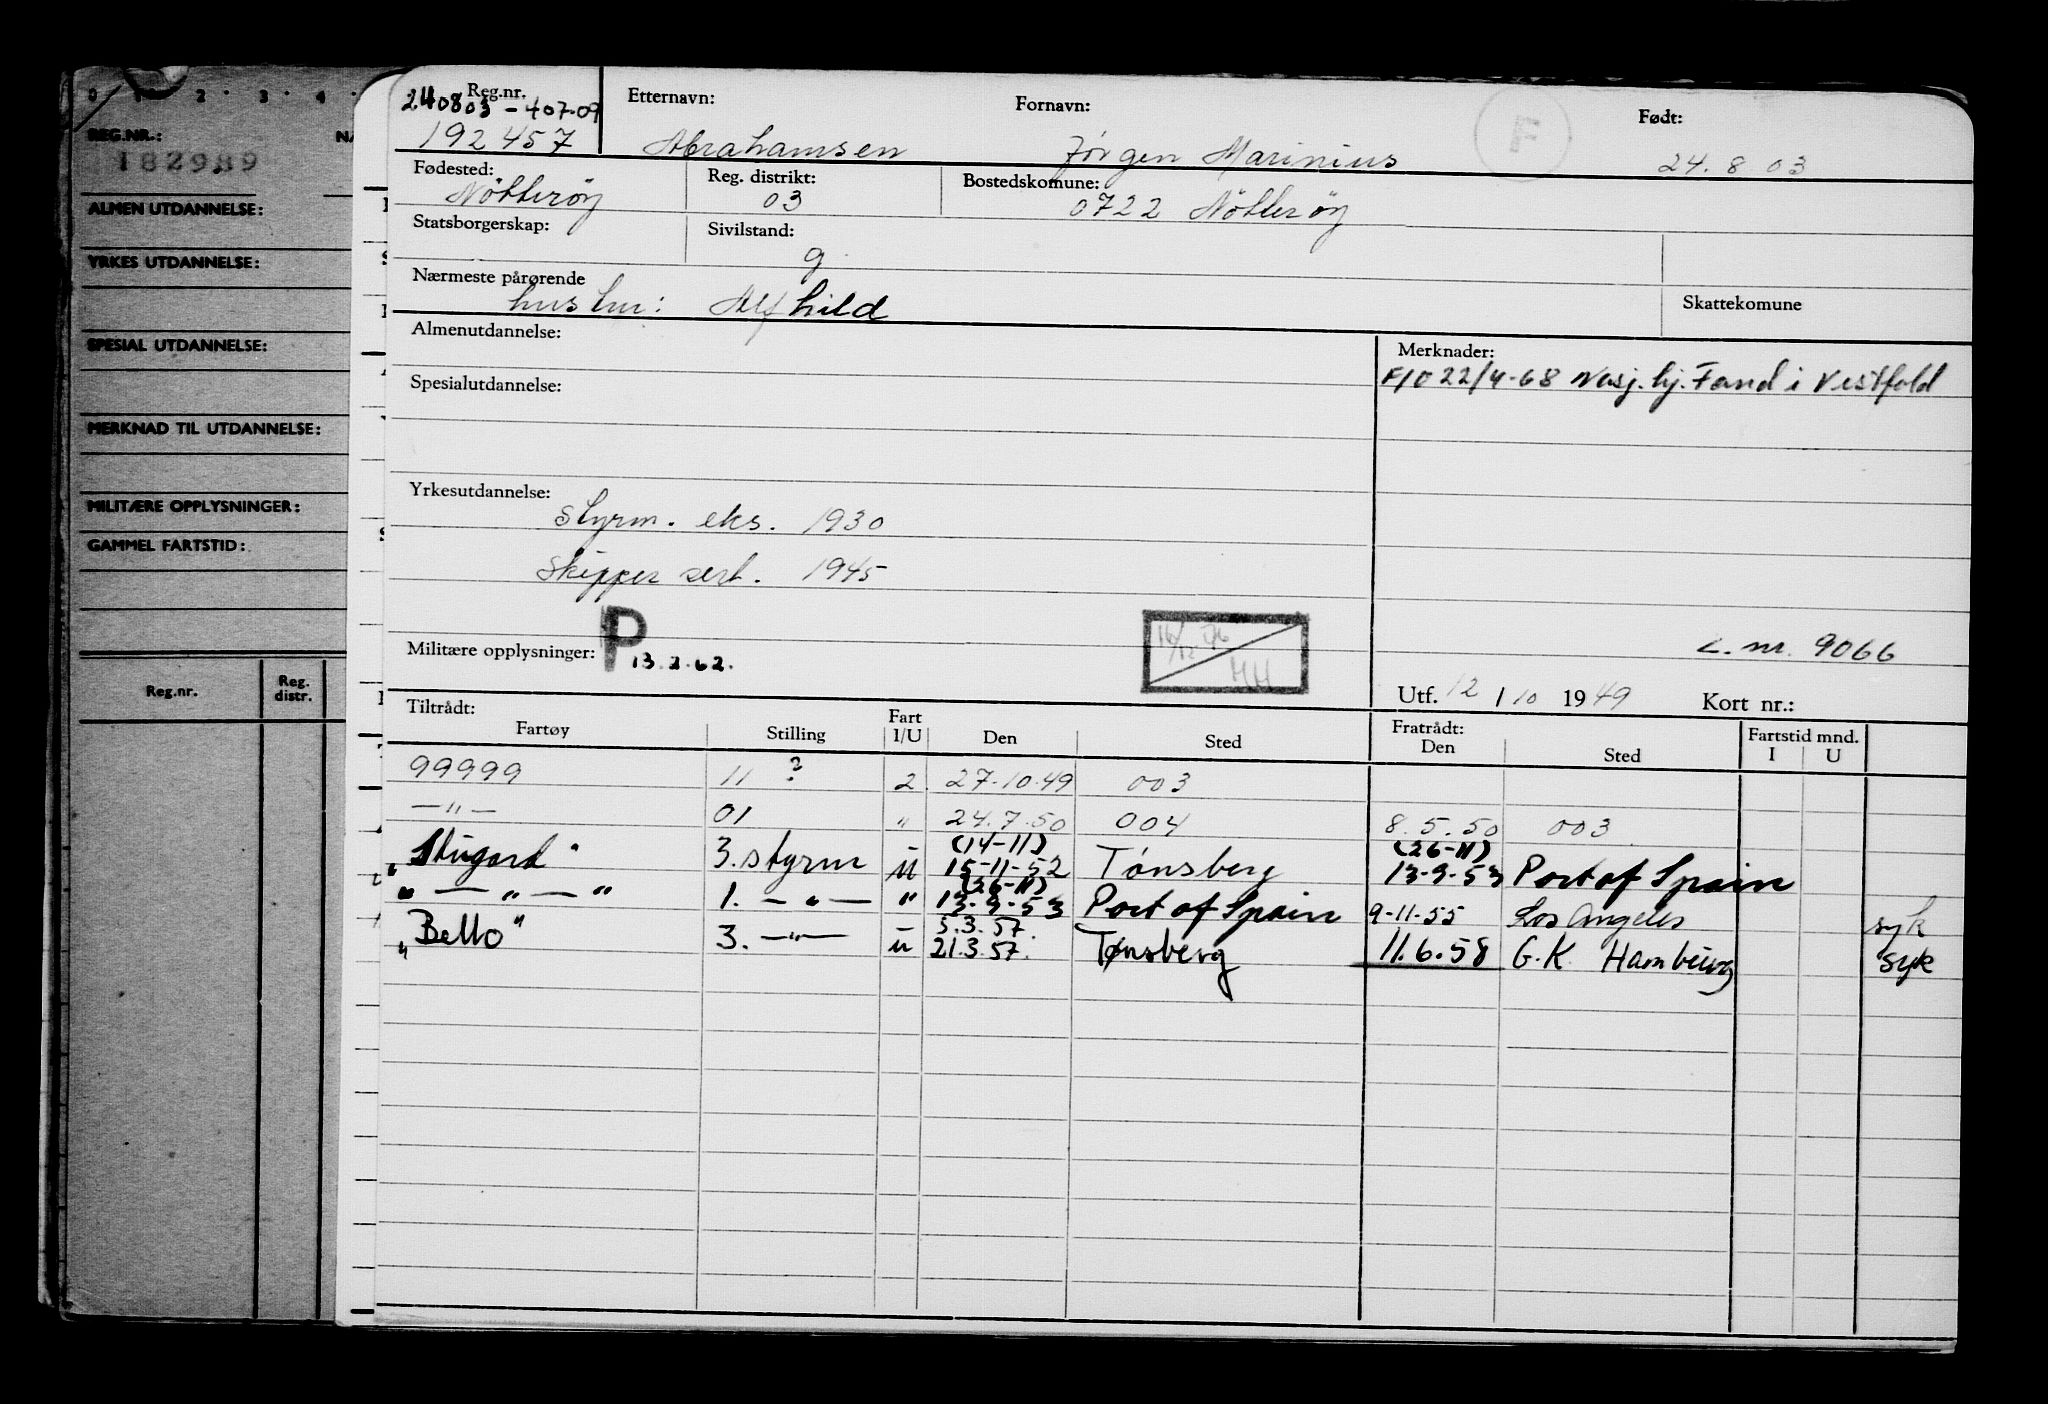 0 1 2 3 4
REG.NR.: NA
182989
ALMEN UTDANNELSE:
YRKES UTDANNELSE:
SPESIAL UTDANNELSE:
MERKNAD TIL UTDANNELSE:
MILITÆRE OPPLYSNINGER:
GAMMEL FARTSTID:
Reg.nr. Reg. distr.
Reg.nr. Etternavn: Fornavn: Født:
240803 - 407.09
192457 Abrahamsen Jörgen Marinius 24.8 03
Fødested: Reg. distrikt: Bostedskomune:
Nötteröy 03 0722 Nötteröy
Statsborgerskap: Sivilstand:
g
Nærmeste pårørende Skattekomune
hustru: Alfhild
Almenutdannelse: Merknader:
F/O 22/4-68 Nasj. hj. Fand i Vestfold
Spesialutdannelse:
Yrkesutdannelse:
Styrm. eks. 1930
Skipper sert. 1945
Militære opplysninger: P 13.2.62. 16/12 76 HH L. nr. 9066
Utf. 12 / 10 1949 Kort nr.:
Tiltrådt: Fratrådt: Fartstid mnd.
Fartøy Stilling Fart I/U Den Sted Den Sted I U
99999 11 ? 2 27.10.49 003
— " — 01 " 24.7.50 004 8.5.50 003
(14-11) (26-11)
" " 3. styrm u 15-11-52 Tønsberg 13-9-53 Port of Spain
(26-11)
" — " — " 1. — " — " 13-9-53 Port of Spain 9-11-55 Los Angeles syk
5.3.57.
"Bello" 3. — " — u 21.3.57. Tønsberg 11.6.58 G.K. Hamburg syk